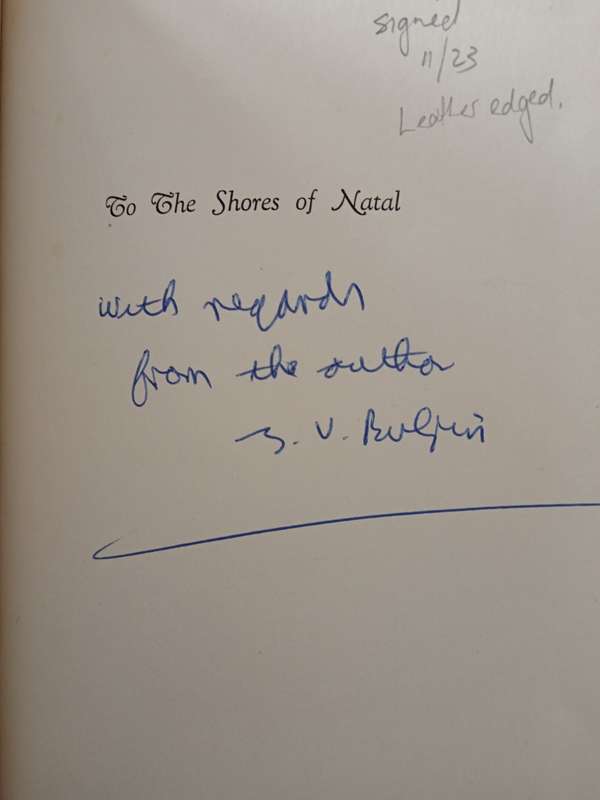 signed
11/23
Leather edged.
To The Shores of Natal
with regards
from the author
T. V. Bulpin